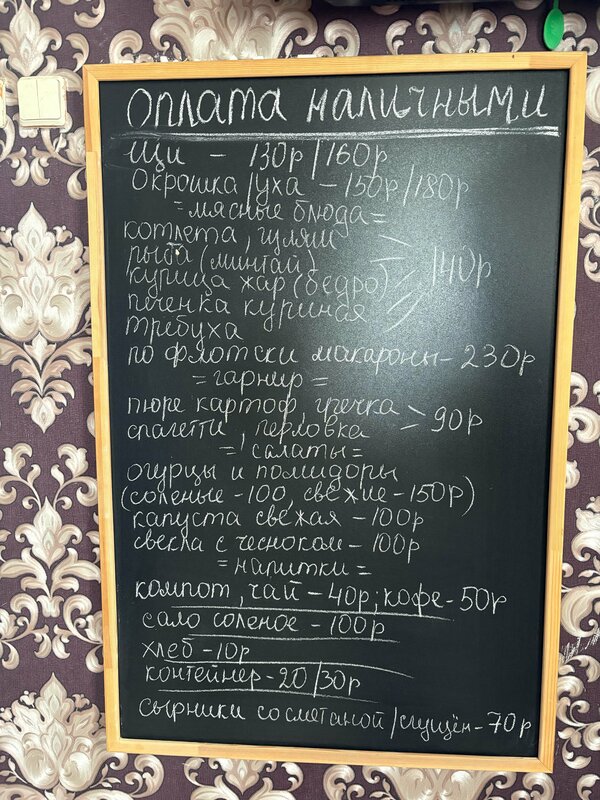 Оплата наличными
Щи - 130р/160р
Окрошка/уха - 150р/180р
=мясные блюда=
котлета, гуляш
рыба (минтай)
курица жар (бедро) 140р
печенка куриная
требуха
по флотски макароны - 230р
=гарнир=
пюре картоф, гречка
спагетти, перловка 90р
=салаты=
огурцы и помидоры
(соленые -100, свежие -150р)
капуста свежая - 100р
свекла с чесноком - 100р
=напитки=
компот, чай - 40р; кофе - 50р
сало соленое - 100р
хлеб - 10р
контейнер - 20/30р
сырники со сметаной/сгущён - 70р